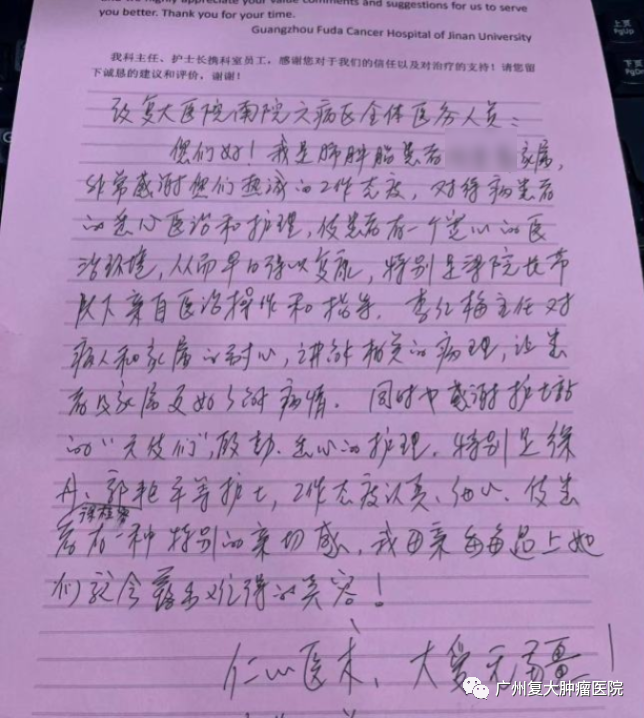 and we highly appreciate your valuable comments and suggestions for us to serve
you better. Thank you for your time.
Guangzhou Fuda Cancer Hospital of Jinan University
我科主任、护士长携科室员工，感谢您对于我们的信任以及对治疗的支持！请您留
下诚恳的建议和评价，谢谢！
致复大医院南院六病区全体医务人员：
您们好！我是肺肿瘤患者 家属，
非常感谢您们热诚的工作态度，对待病患者
的悉心医治和护理，使患者有一个宽心的医
治环境，从而早日得以复康，特别是 院长带
队下亲自医治操作和指导。李红梅主任对
病人和家属的耐心，讲解相关的病理，让患
者及家属更好了解病情。同时也感谢护士站
的“天使们”，殷勤、悉心的护理。特别是徐
丹、郭艳平等护士，工作态度认真、细心、使患
者有一种特别的亲切感，我母亲每每遇上她
们就会露出难得的笑容！
仁心医术、大爱无疆！
广州复大肿瘤医院